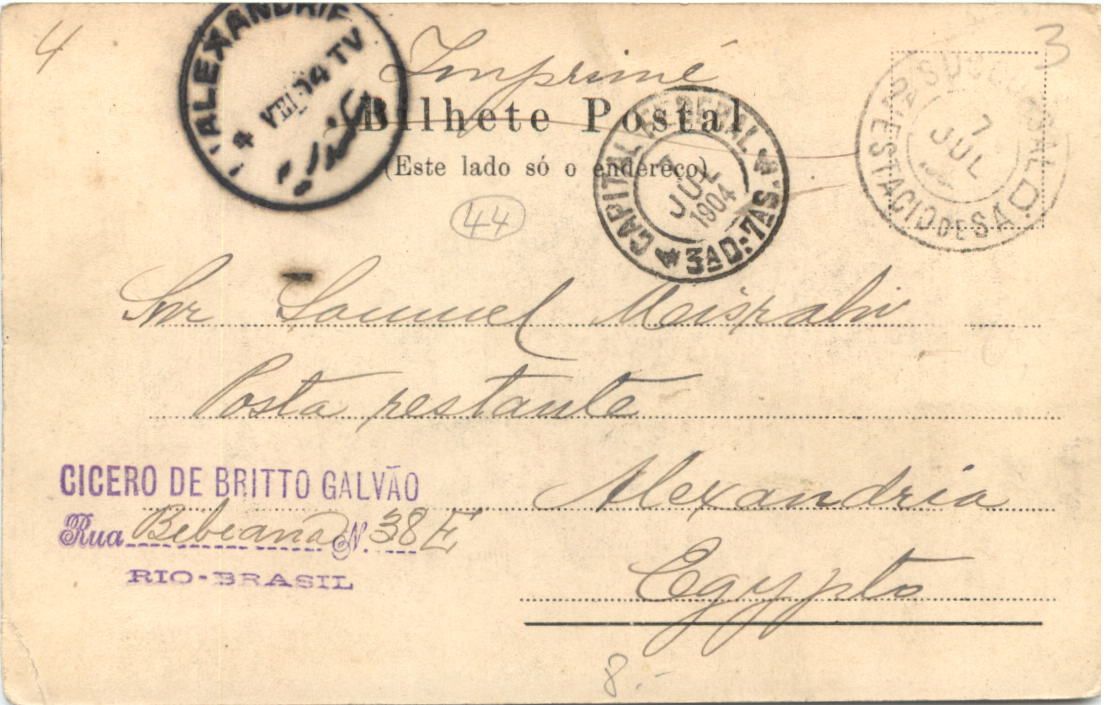 4
3
Imprimé
Bilhete Postal
(Este lado só o endereço)
ALEXANDRIE
VIII 04 TV
CAPITAL FEDERAL
7
JUL
1904
3ª D:7 AS.
SUCCURSAL D
2ª ESTACIO DE SÁ
7
JUL
44
Snr Samuel Meisrahi
Posta restante
Alexandria
Egypto
CICERO DE BRITTO GALVÃO
Rua Bebiana N. 38 E
RIO-BRASIL
8.-